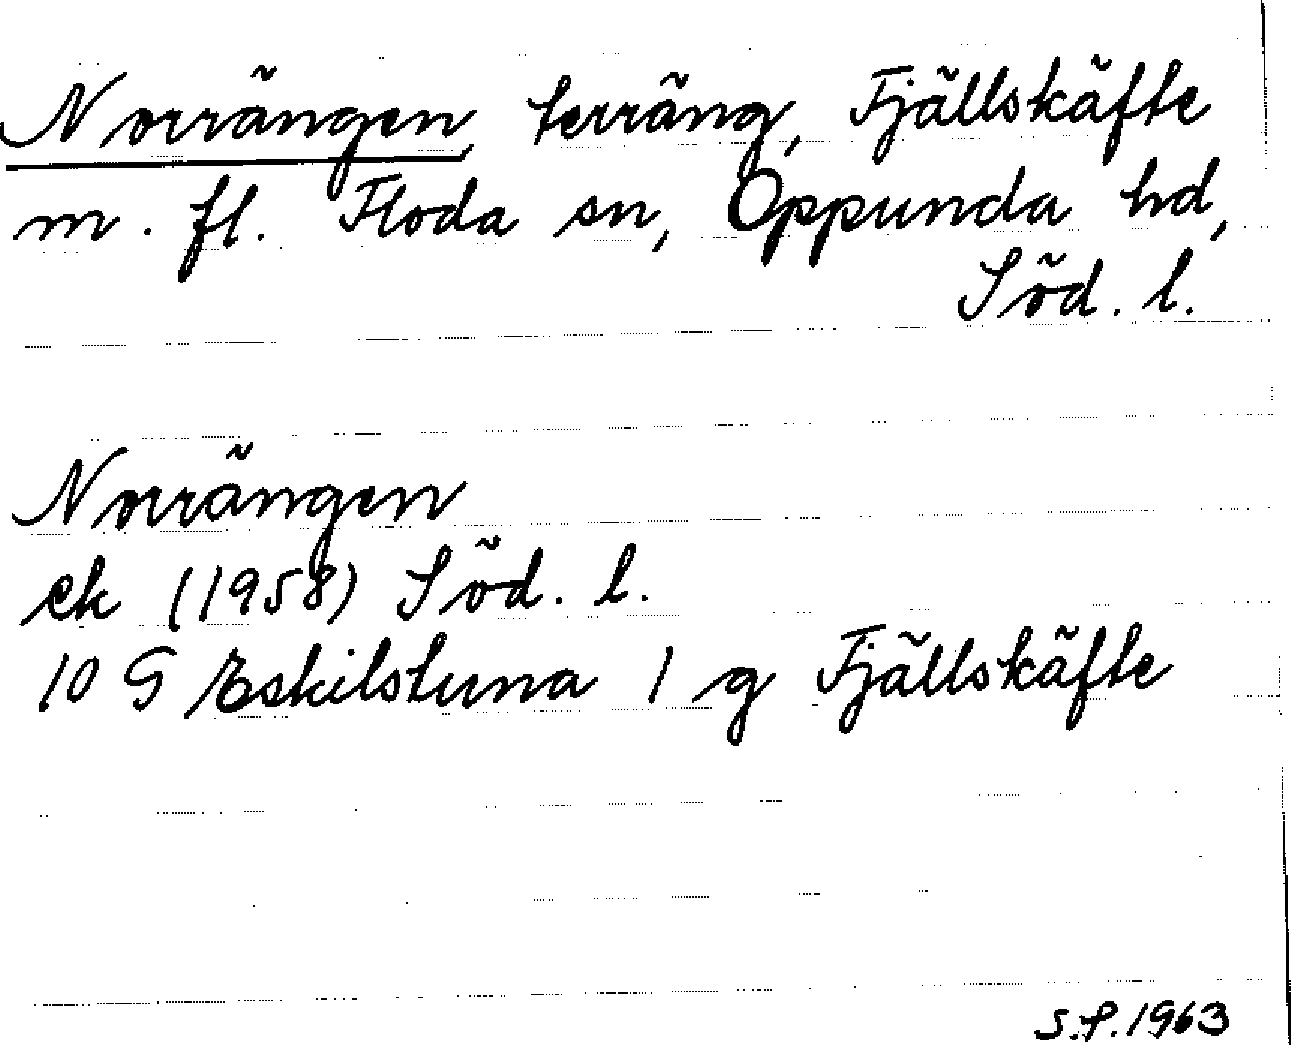 Norrängen, terräng, Fjällskäfte
m. fl. Floda sn, Oppunda hd,
Söd. l.
Norrängen
ek (1958) Söd. l.
10 G Eskilstuna 1 g Fjällskäfte
S.P. 1963